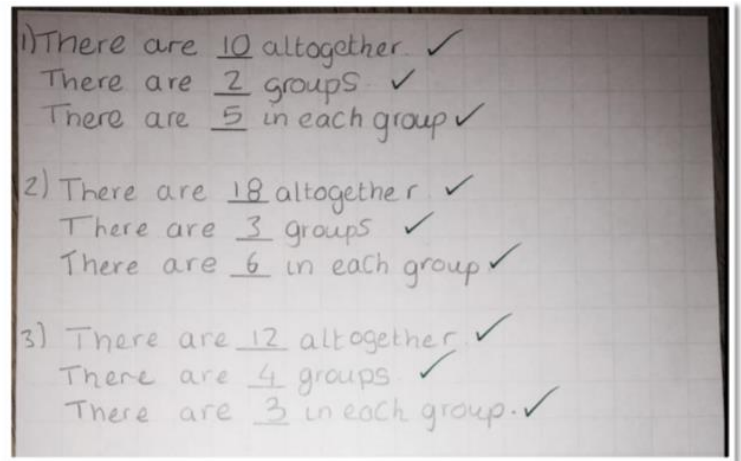 1) There are 10 altogether. ✓
There are 2 groups. ✓
There are 5 in each group ✓
2) There are 18 altogether. ✓
There are 3 groups ✓
There are 6 in each group ✓
3) There are 12 altogether. ✓
There are 4 groups. ✓
There are 3 in each group. ✓